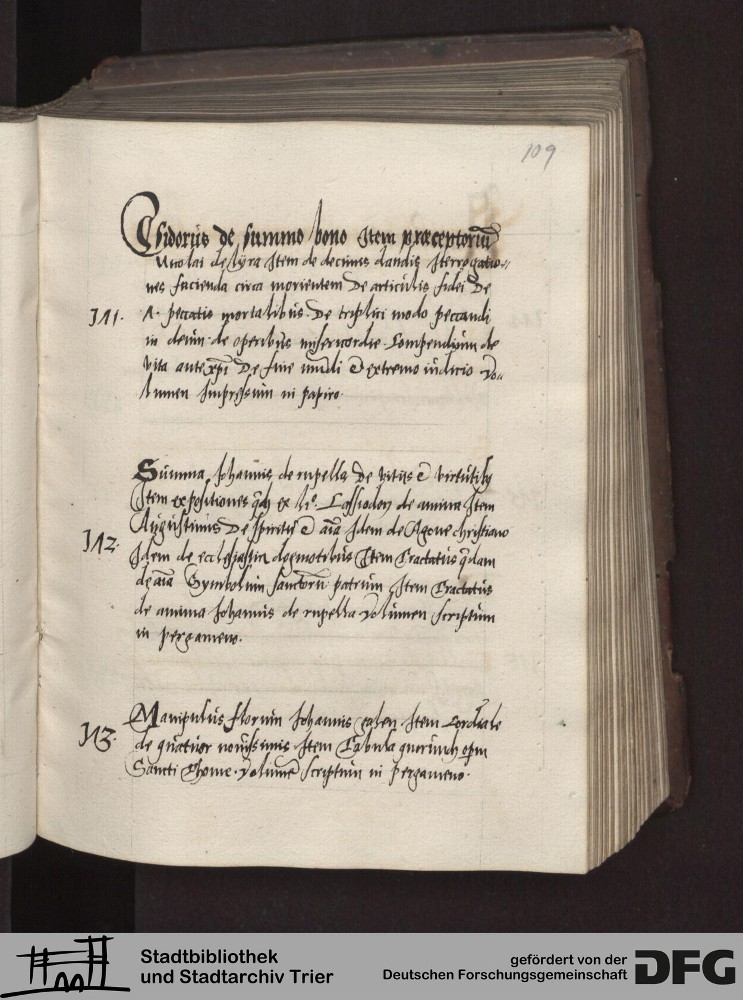 109
Esidorus de summo bono Item præceptoriũ
Nicolai de lyra Item de decimis dandis Iterrogatio=
nes facienda circa morientem De articulis fidei De
JJ1. peccatis mortalibus De triplici modo peccandi
in deum de operibus misericordie Compendium de
vita antexp̃i De fine mũdi & extremo iudicio Vo=
lumen Impressum in papiro.
Summa Johannis de rupella De vitiis & virtutibꝫ
Item expositiones ex de anima Item
Augustinus De spiritu & aĩa Idem de Agone christiano
JJ2. Idem de ecclesiasticis dogmatibus Item Tractatus q̃dam
de aĩa Symbolum sanctorũ patrum Item Tractatus
de anima Johannis de rupella Volumen scriptum
in pergameno.
Manipulus florum Johannis galen Item Cordiale
JJ3. de quatuor nouissimis Item Tabula quorundã opm̃
Sancti Thome. Volumẽ scriptum in pergameno.
Stadtbibliothek
und Stadtarchiv Trier
gefördert von der
Deutschen Forschungsgemeinschaft
DFG